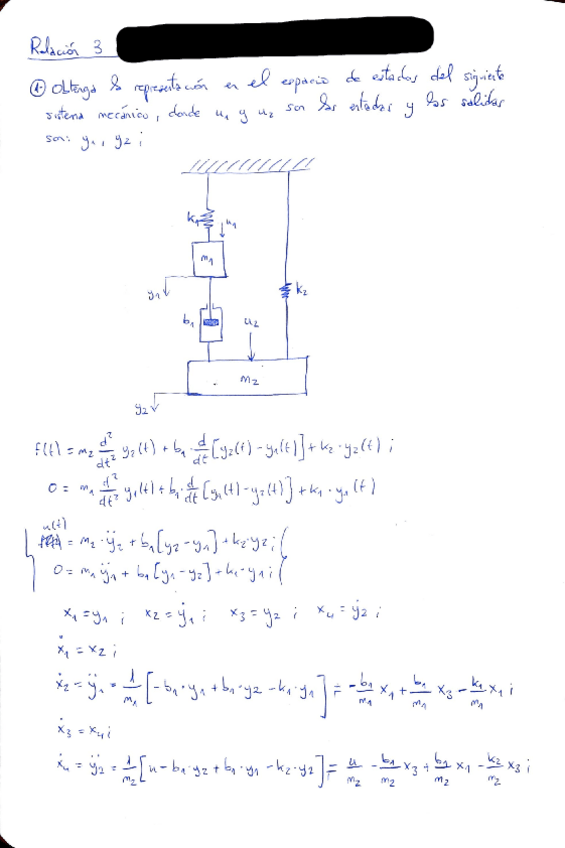 Relación 3
1. Obtenga la representación en el espacio de estados del siguiente
sistema mecánico, donde u₁ y u₂ son las entadas y las salidas
son: y₁, y₂ ;
k₁
u₁
m₁
y₁
k₂
b₁
u₂
m₂
y₂
f(t) = m₂ d²/dt² y₂(t) + b₁ · d/dt [y₂(t) - y₁(t)] + k₂ · y₂(t) ;
0 = m₁ d²/dt² y₁(t) + b₁ · d/dt [y₁(t) - y₂(t)] + k₁ · y₁(t)
u(t)
= m₂ · ÿ₂ + b₁[y₂ - y₁] + k₂ · y₂ ; (
0 = m₁ ÿ₁ + b₁[y₁ - y₂] + k₁ · y₁ ; (
x₁ = y₁ ; x₂ = ẏ₁ ; x₃ = y₂ ; x₄ = ẏ₂ ;
ẋ₁ = x₂ ;
ẋ₂ = ÿ₁ = 1/m₁ [-b₁ · y₁ + b₁ · y₂ - k₁ · y₁] = -b₁/m₁ x₁ + b₁/m₁ x₃ - k₁/m₁ x₁ ;
ẋ₃ = x₄ ;
ẋ₄ = ÿ₂ = 1/m₂ [u - b₁ · y₂ + b₁ · y₁ - k₂ · y₂] = u/m₂ - b₁/m₂ x₃ + b₁/m₂ x₁ - k₂/m₂ x₃ ;